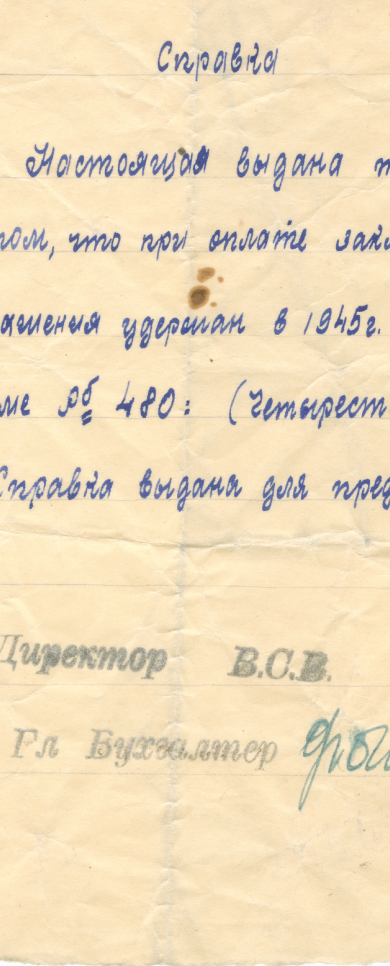 Справка
Настоящая выдана т
том, что при оплате закл
ашения удержан в 1945г.
ме Рб 480: (Четырест
Справка выдана для пред
Директор В.С.В.
Гл Бухгалтер